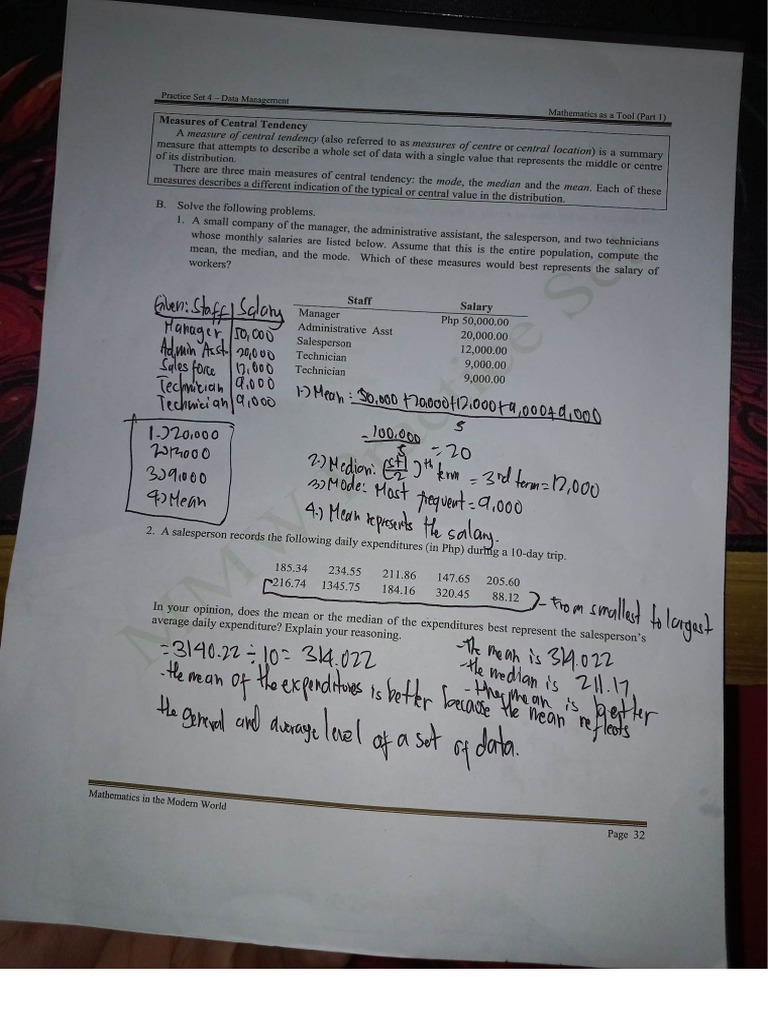 Practice Set 4 – Data Management
Mathematics as a Tool (Part 1)
Measures of Central Tendency
A measure of central tendency (also referred to as measures of centre or central location) is a summary
measure that attempts to describe a whole set of data with a single value that represents the middle or centre
of its distribution.
There are three main measures of central tendency: the mode, the median and the mean. Each of these
measures describes a different indication of the typical or central value in the distribution.
B. Solve the following problems.
1. A small company of the manager, the administrative assistant, the salesperson, and two technicians
whose monthly salaries are listed below. Assume that this is the entire population, compute the
mean, the median, and the mode. Which of these measures would best represents the salary of
workers?
Staff Salary
Manager Php 50,000.00
Administrative Asst 20,000.00
Salesperson 12,000.00
Technician 9,000.00
Technician 9,000.00
Given: Staff Salary
Manager 50,000
Admin Asst. 20,000
Sales force 12,000
Technician 9,000
Technician 9,000
1.) Mean: 50,000+20,000+12,000+9,000+9,000
5
= 100,000
5
= 20
2.) Median: (5+1
2
)th term = 3rd term = 12,000
3.) Mode: Most frequent = 9,000
4.) Mean represents the salary.
1.) 20,000
2) 12000
3.) 9,000
4.) Mean
2. A salesperson records the following daily expenditures (in Php) during a 10-day trip.
185.34 234.55 211.86 147.65 205.60
216.74 1345.75 184.16 320.45 88.12
- from smallest to largest
In your opinion, does the mean or the median of the expenditures best represent the salesperson's
average daily expenditure? Explain your reasoning.
= 3140.22 ÷ 10 = 314.022
- the mean is 314.022
- the median is 211.17
- the mean is better
- the mean of the expenditures is better because the mean reflects
the general and average level of a set of data.
Mathematics in the Modern World
Page 32
MMW Practice Set